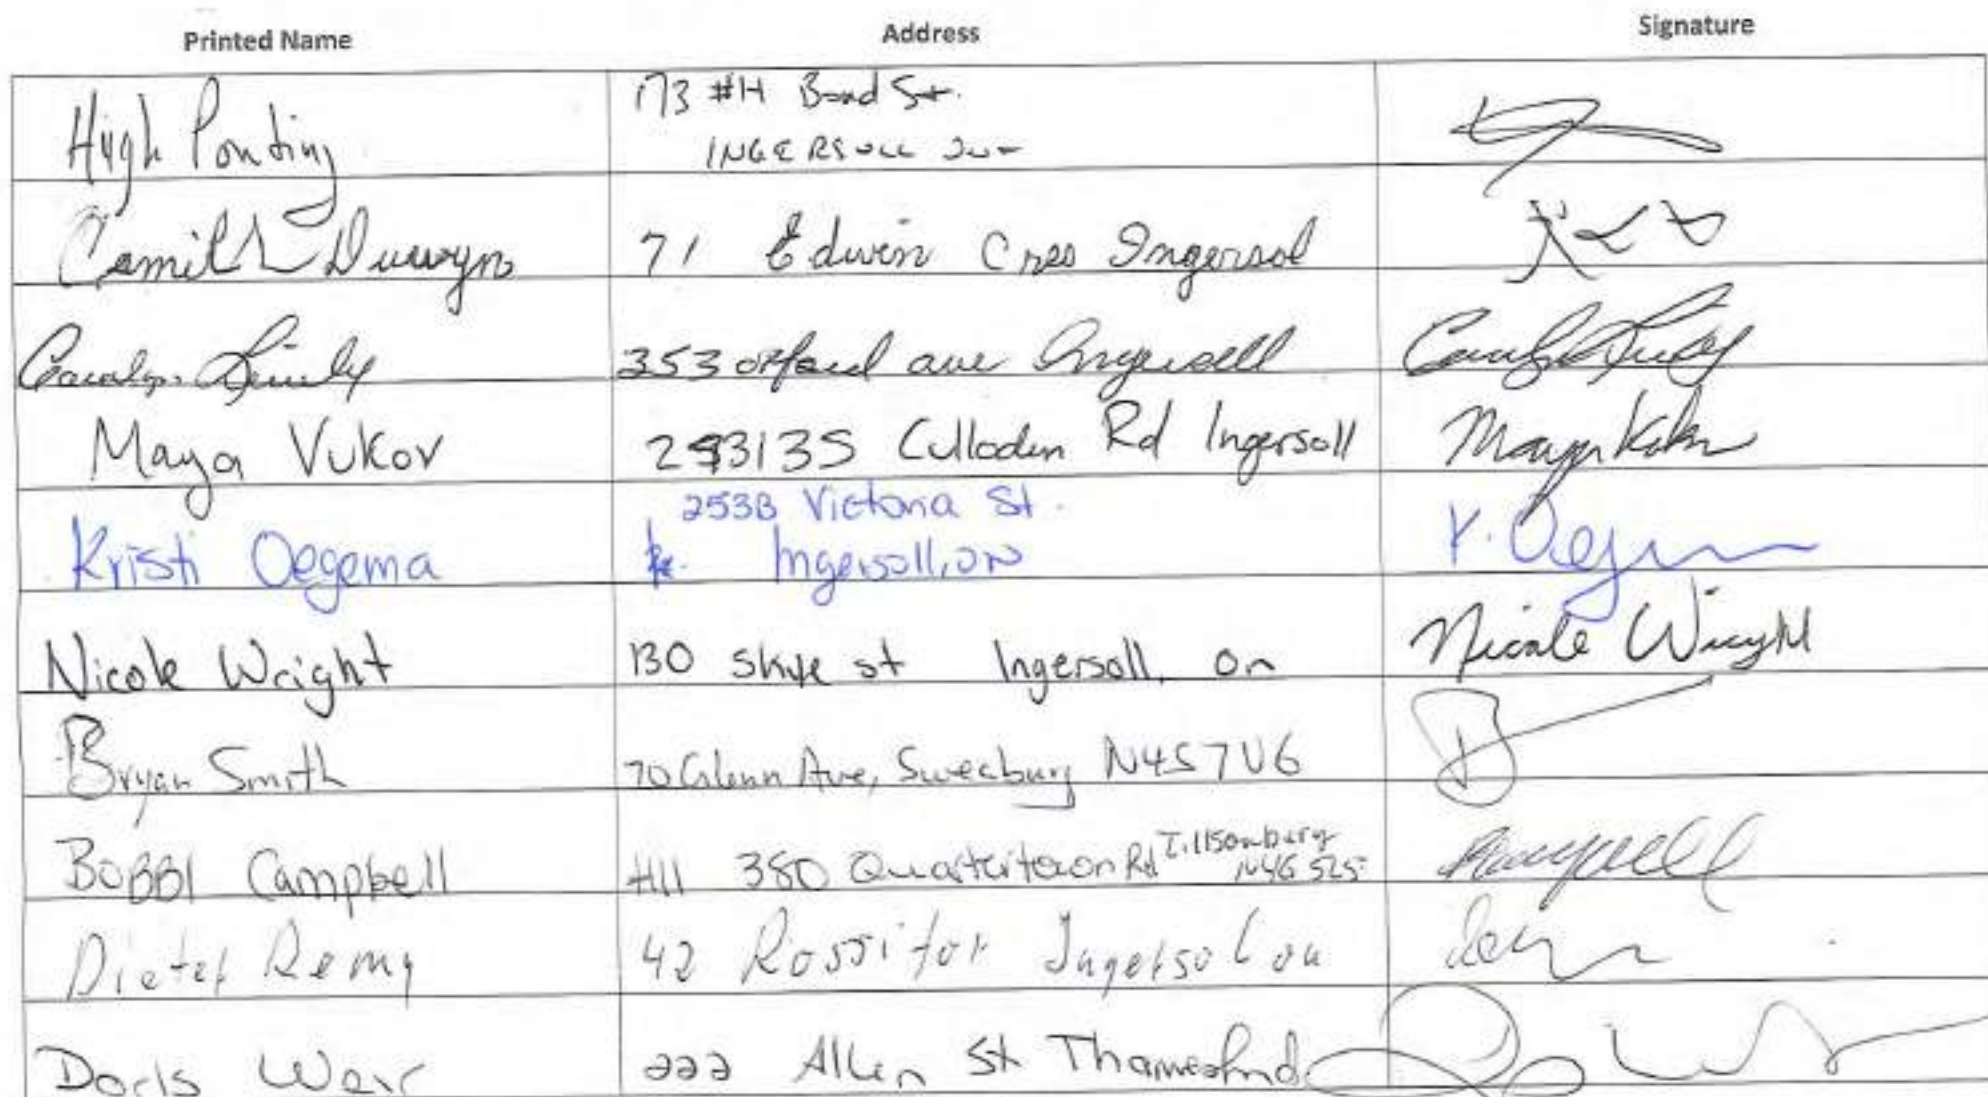 Printed Name Address Signature
High Ponting 173 #H Bond St.
INGERSOLL Ont
Camil Duwyn 71 Edwin Cres Ingersol
353 Oxford ave Ingersoll
Maya Vukov 293135 Culloden Rd Ingersoll
253B Victoria St.
Kristi Oegema Ingersoll, ON K. Oegema
Nicole Wright 130 Skye st Ingersoll, on Nicole Wright
Bryan Smith 70 Glenn Ave, Sweaburg N4S7V6
BOBBI Campbell #11 380 Quartertown Rd Tillsonburg
Dieter Remy 42 Rossiter Ingersol on
Doris Weir 222 Allen St Thamesford